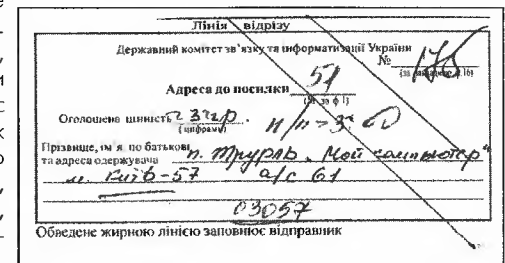 Лінія відрізу
Державний комітет зв'язку та інформатизації України
№ 175
(за ф. 16)
51
Адреса до посилки
(№ за ф 1)
Оголошена цінність 2 З гр.
(цифрами)
н/п = 3
Прізвище, ім'я по батькові
та адреса одержувача п. Трурль "Мой компьютер"
м. Київ-57 а/с 61
03057
Обведене жирною лінією заповнює відправник